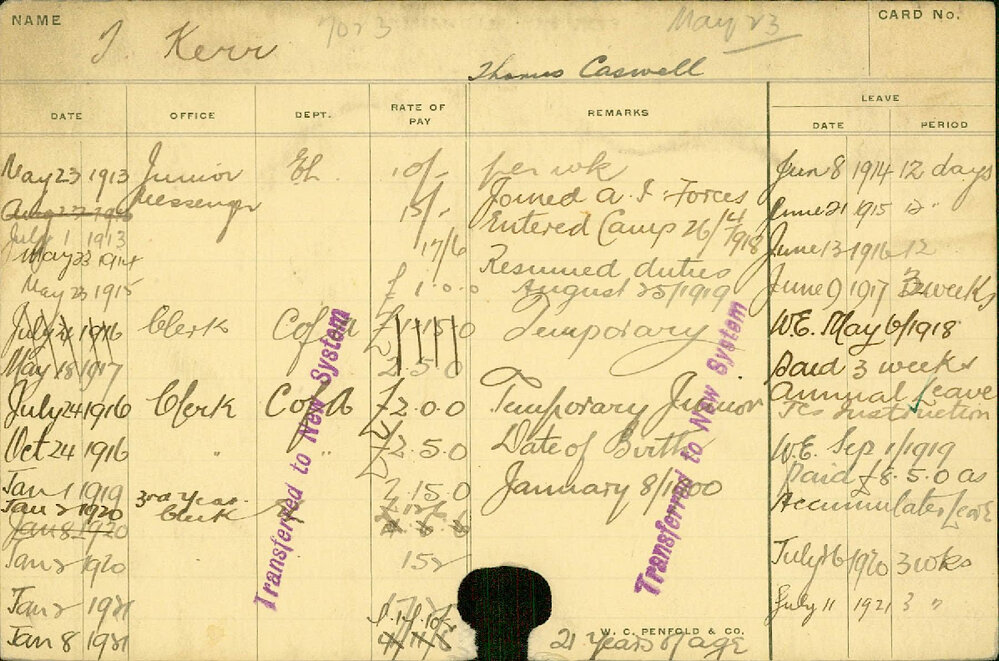 NAME T. Kerr 7023 May 23 CARD No.
Thomas Caswell
DATE OFFICE DEPT. RATE OF PAY REMARKS LEAVE
DATE PERIOD
May 23 1913 Junior Messenger EL. 10/- per wk Jun 8 1914 12 days
15/- Joined A.I. Forces June 21 1915 12 "
July 1 1913 Entered Camp 26/4/1918
May 23 1914 17/6 June 12 1916 12
Resumed duties
May 23 1915 £1.0.0 August 25/1919 June 9 1917 3 weeks
July 24 1916 Clerk Cof A £1.15.0 Temporary W.E. May 6/1918
May 18 1917 2.5.0 Paid 3 weeks
July 24 1916 Clerk Cof A £2.0.0 Temporary Junior Annual Leave
Instruction
Oct 24 1916 " " £2.5.0 Date of Birth W.E. Sep 1/1919
Jan 1 1919 2.15.0 January 8/1900 Paid £8.5.0 as
Jan 2 1920 3rd Year Clerk Accumulated Leave
Jan 8 1920
Jan 2 1920 152 July 26 1920 3 wks
Jan 2 1921 July 11 1921 3 "
Jan 8 1921 21 years of age
W. C. PENFOLD & CO.
Transferred to New System
Transferred to New System